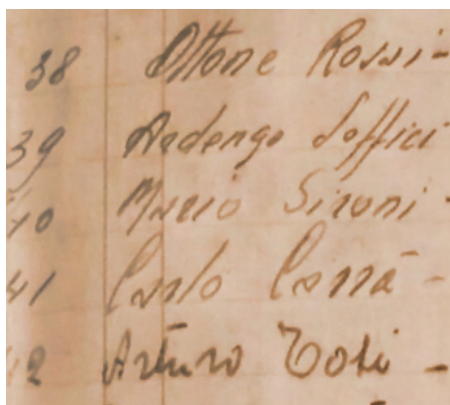 38 Ottone Rosai -
39 Ardengo Soffici
40 Mario Sironi -
41 Carlo Carrà -
42 Arturo Tosi -